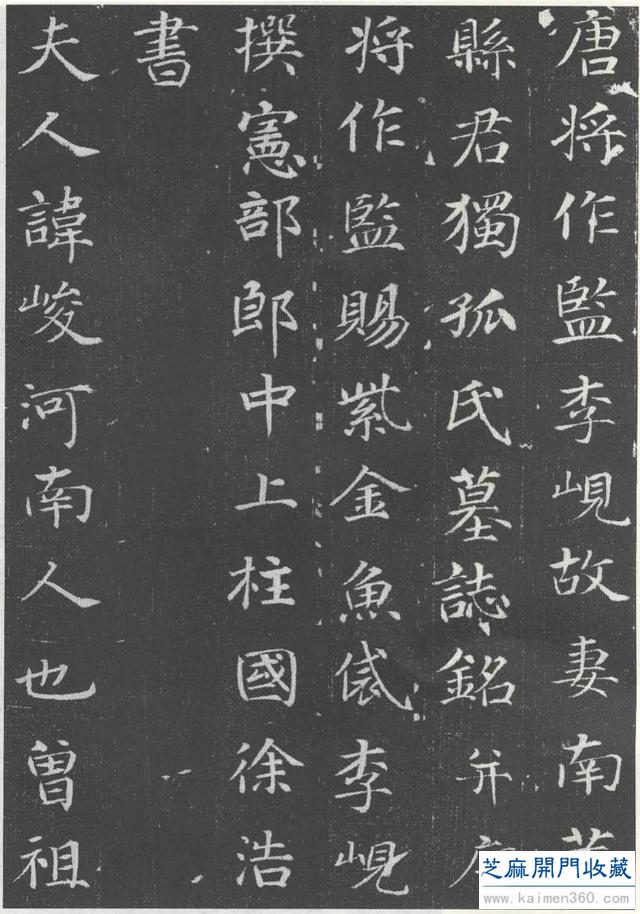 唐将作監李峴故妻南
縣君獨孤氏墓誌銘并
将作監賜紫金魚袋李峴
撰憲部郎中上柱國徐浩
書
夫人諱峻河南人也曽祖
芝麻開門收藏
www.kaimen360.com